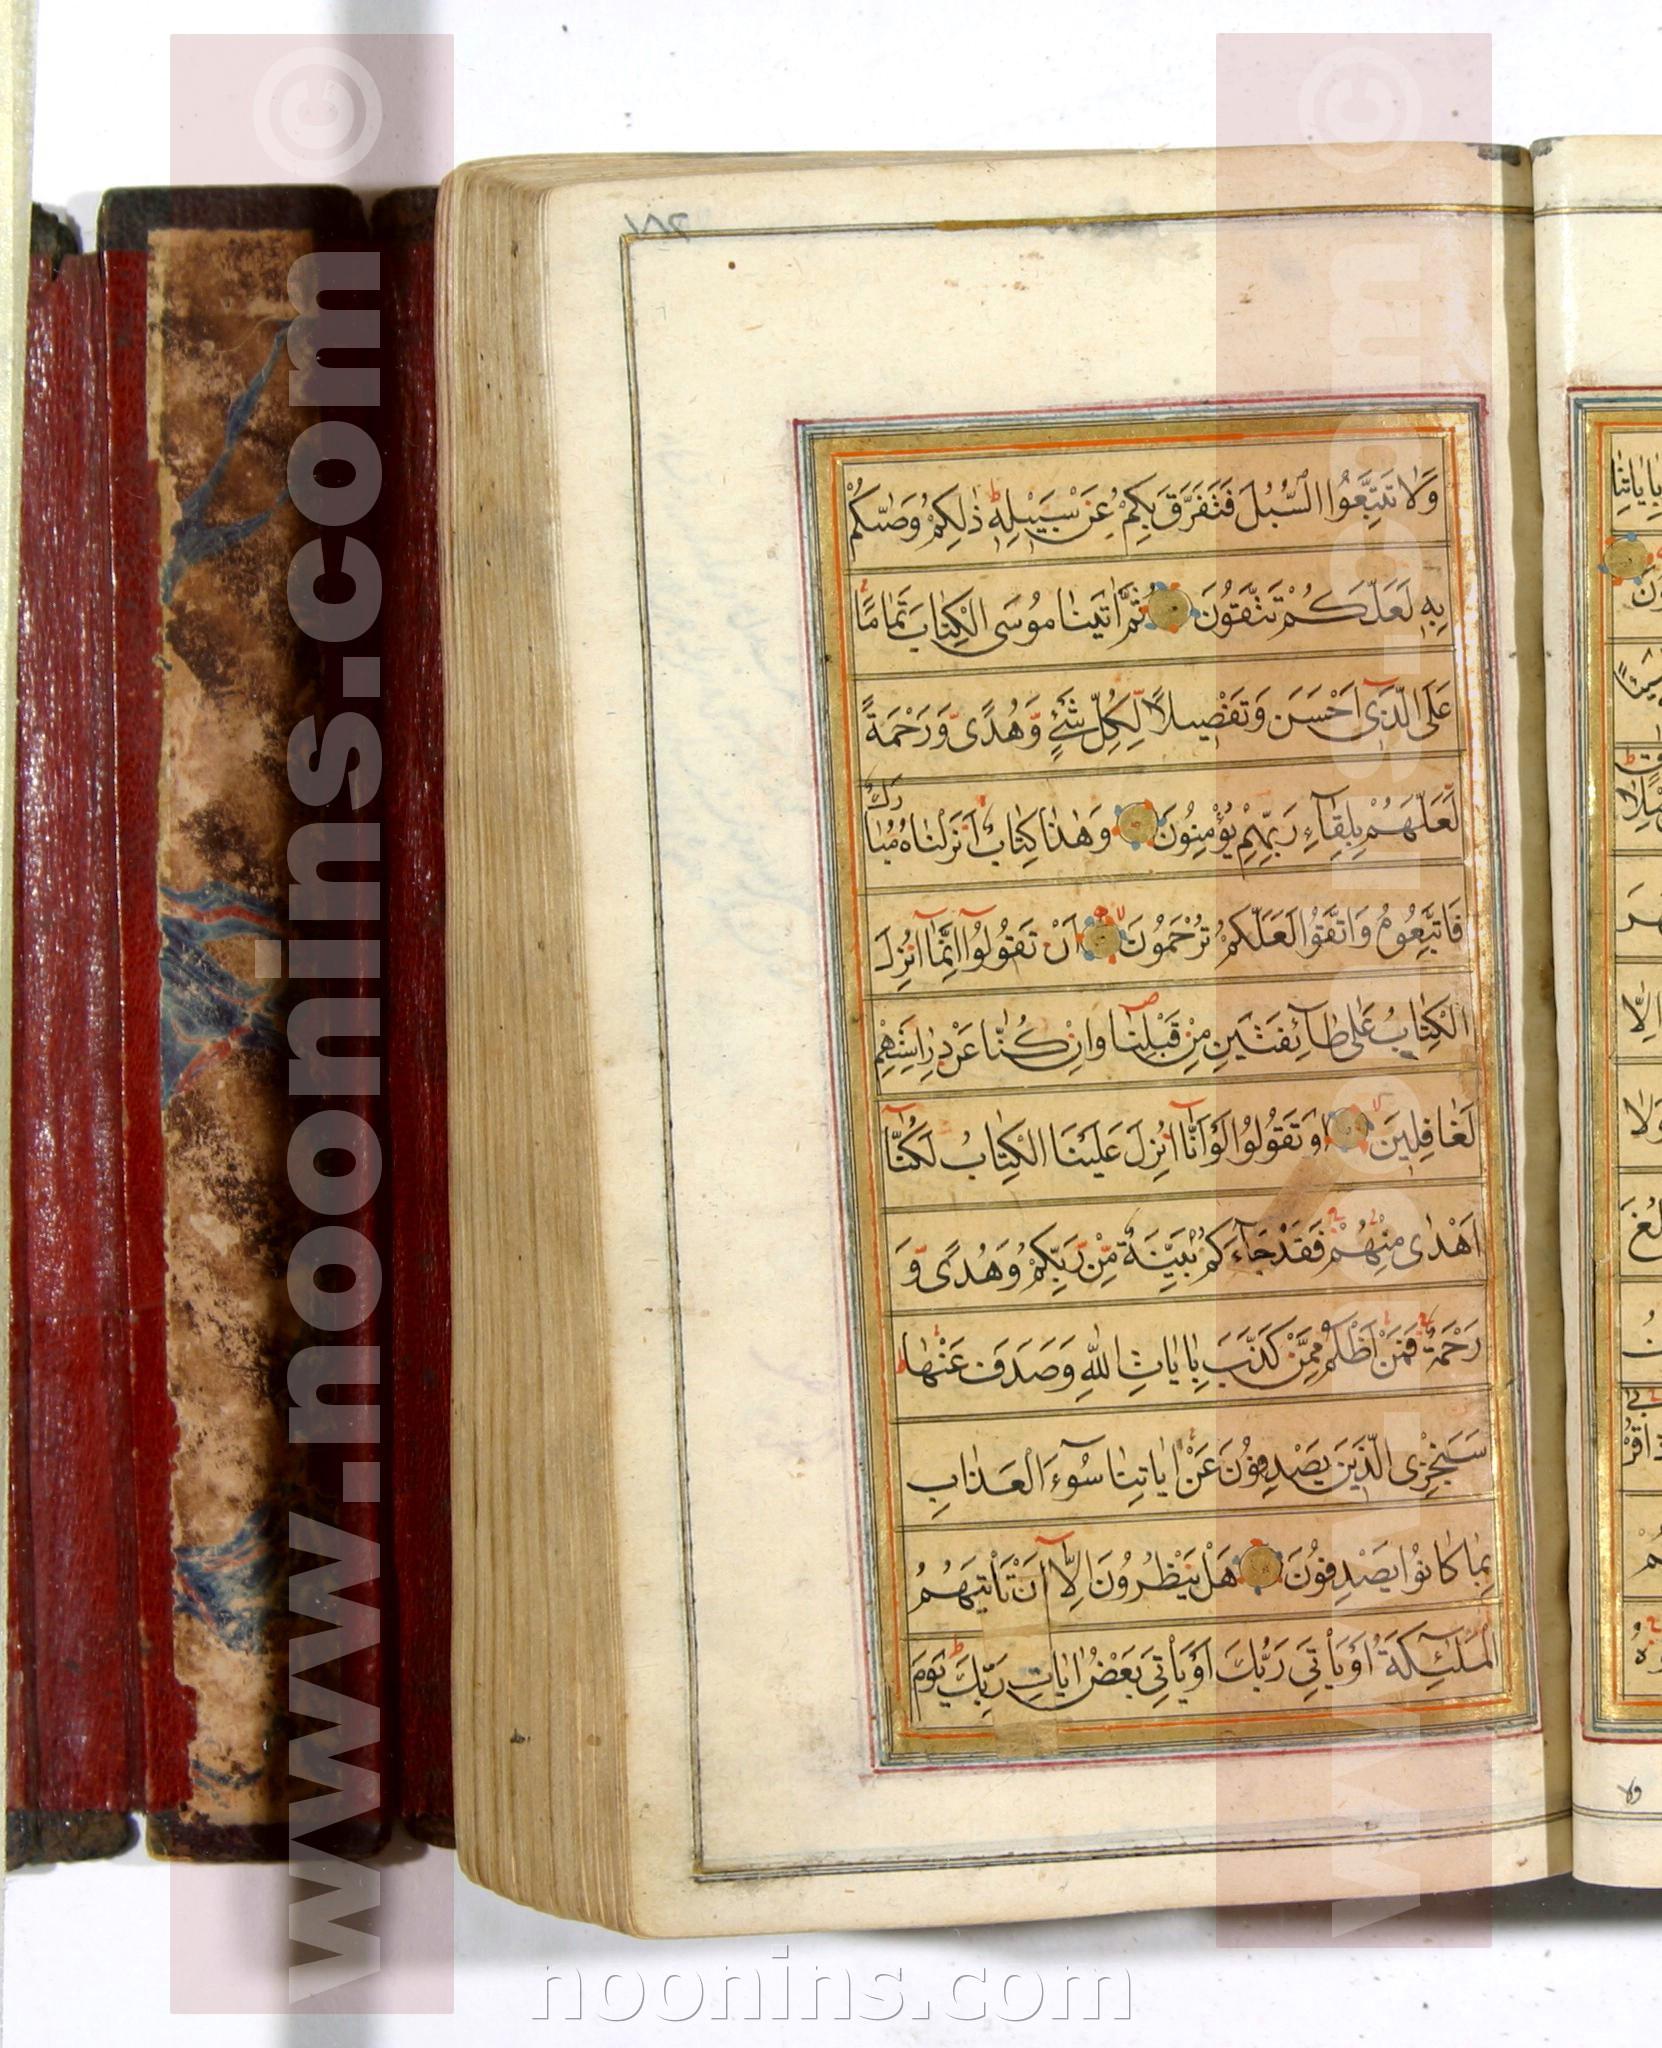 وَلَا تَتَّبِعُوا السُّبُلَ فَتَفَرَّقَ بِكُمْ عَنْ سَبِيلِهِ ذٰلِكُمْ وَصّٰىكُمْ
بِهِ لَعَلَّكُمْ تَتَّقُونَ ثُمَّ اٰتَيْنَا مُوسَى الْكِتَابَ تَمَامًا
عَلَى الَّذِي اَحْسَنَ وَتَفْصِيلًا لِكُلِّ شَيْءٍ وَهُدًى وَرَحْمَةً
لَعَلَّهُمْ بِلِقَآءِ رَبِّهِمْ يُؤْمِنُونَ وَهٰذَا كِتَابٌ اَنْزَلْنَاهُ مُبَارَكٌ
فَاتَّبِعُوهُ وَاتَّقُوا لَعَلَّكُمْ تُرْحَمُونَ اَنْ تَقُولُوآ اِنَّمَآ اُنْزِلَ
الْكِتَابُ عَلٰى طَآئِفَتَيْنِ مِنْ قَبْلِنَا وَاِنْ كُنَّا عَنْ دِرَاسَتِهِمْ
لَغَافِلِينَ اَوْ تَقُولُوا لَوْ اَنَّآ اُنْزِلَ عَلَيْنَا الْكِتَابُ لَكُنَّآ
اَهْدٰى مِنْهُمْ فَقَدْ جَآءَكُمْ بَيِّنَةٌ مِنْ رَبِّكُمْ وَهُدًى وَ
رَحْمَةٌ فَمَنْ اَظْلَمُ مِمَّنْ كَذَّبَ بِاٰيَاتِ اللّٰهِ وَصَدَفَ عَنْهَا
سَنَجْزِي الَّذِينَ يَصْدِفُونَ عَنْ اٰيَاتِنَا سُوٓءَ الْعَذَابِ
بِمَا كَانُوا يَصْدِفُونَ هَلْ يَنْظُرُونَ اِلَّآ اَنْ تَأْتِيَهُمُ
الْمَلٰٓئِكَةُ اَوْ يَأْتِيَ رَبُّكَ اَوْ يَأْتِيَ بَعْضُ اٰيَاتِ رَبِّكَ يَوْمَ
www.noonins.com ©
www.noonins.com ©
noonins.com